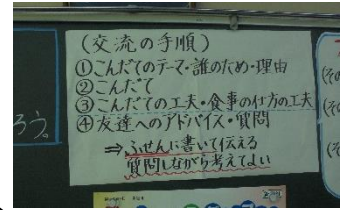 (交流の手順)
①こんだてのテーマ・誰のため・理由
②こんだて
③こんだての工夫・食事の仕方の工夫
④友達へのアドバイス・質問
⇒ふせんに書いて伝える
質問しながら考えてよい
ろう。